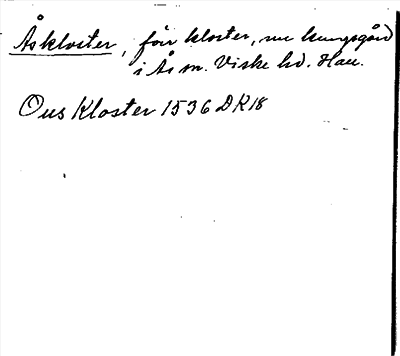 Åskloster, förr kloster, nu kungsgård
i Ås sn. Viske hd. Hall.
Ous Kloster 1536 DR 18